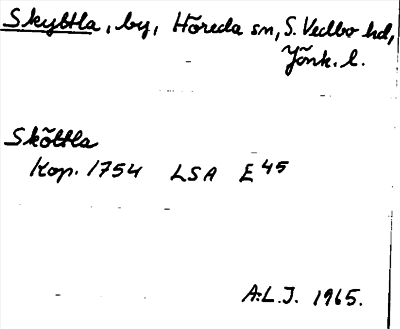 Skyttla, by, Höreda sn, S. Vedbo hd,
Jönk. l.
Sköttla
Kop. 1754 LSA E 45
A.L.J. 1965.